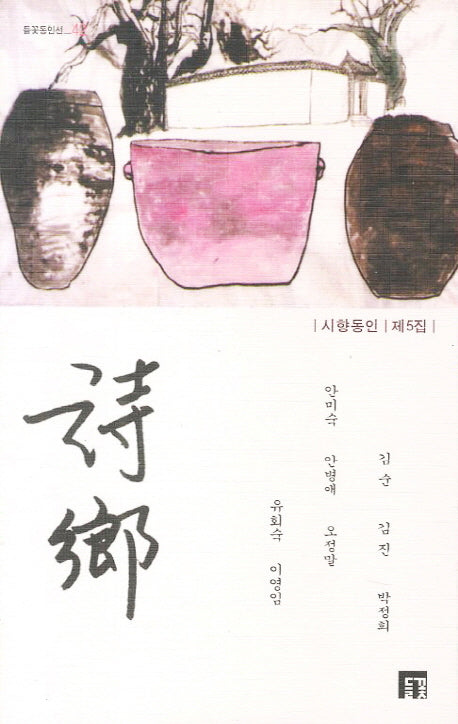 들꽃동인선_4
| 시향동인 | 제5집 |
詩鄕
김 순 김 진 박정희
안미숙 안병애 오정말
유회숙 이영임
들꽃